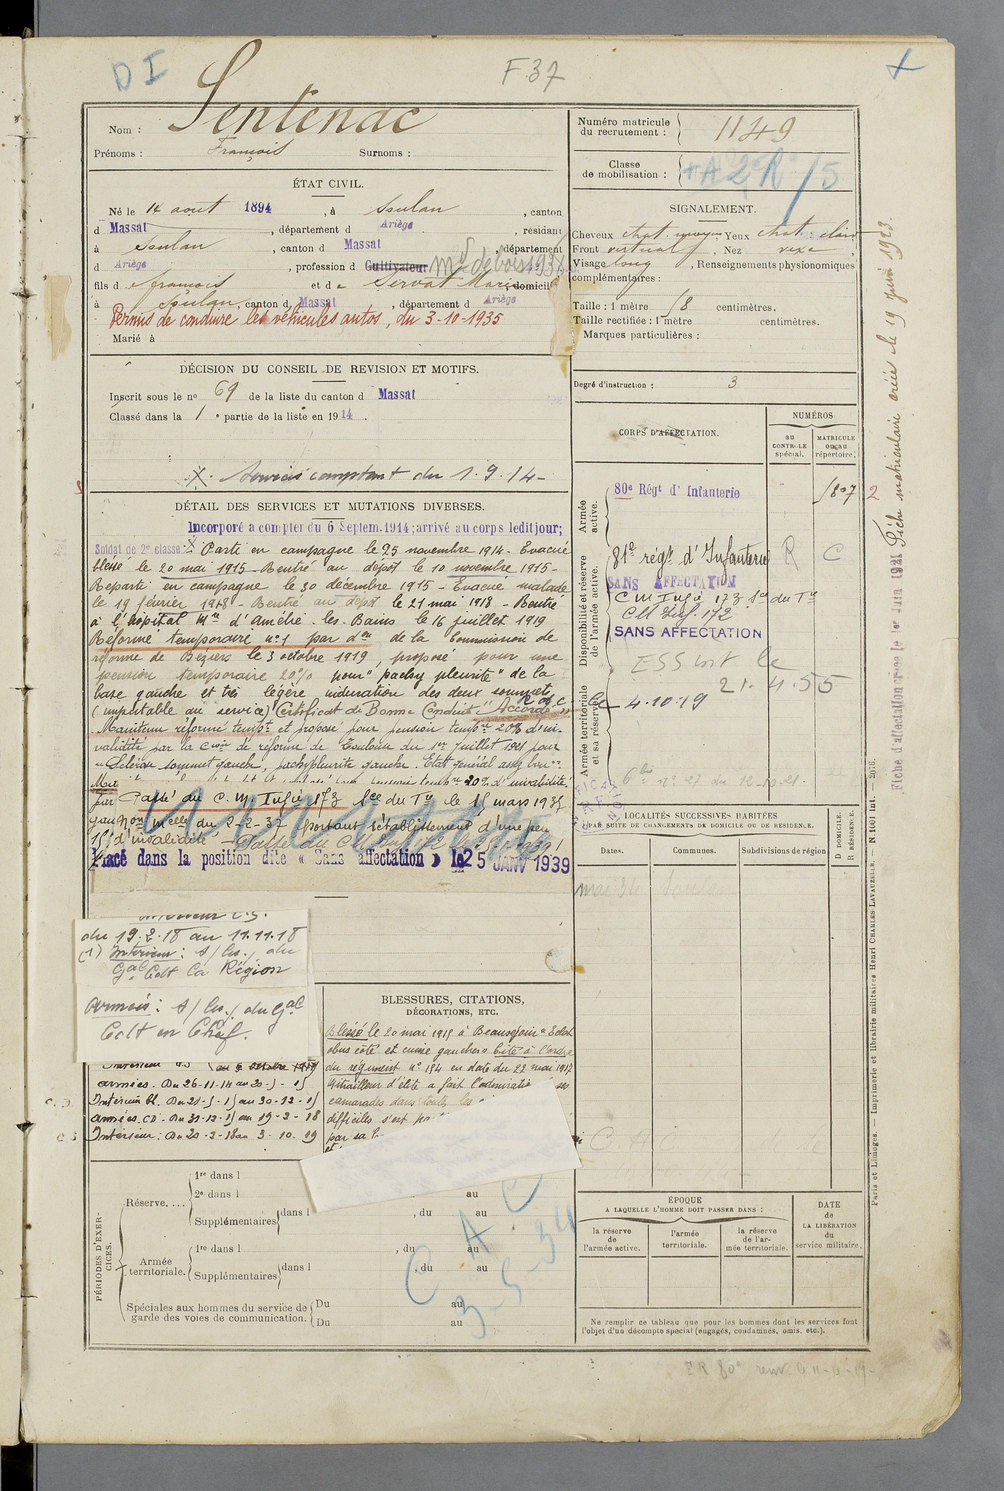 DI
F.37
Nom : Sentenac
Prénoms : François Surnoms :
ÉTAT CIVIL.
Né le 14 août 1894, à Soulan, canton
d Massat, département d Ariège, résidant
à Soulan, canton d Massat, département
d Ariège, profession d Cultivateur Md de bois 1934
fils d François et de Servat Marie, domicilié
à Soulan, canton d Massat, département d Ariège
Permis de conduire les véhicules autos, du 3-10-1935
Marié à
DÉCISION DU CONSEIL DE REVISION ET MOTIFS.
Inscrit sous le no 69 de la liste du canton d Massat
Classé dans la 1e partie de la liste en 1914.
X. Services comptant du 1.9.14-
DÉTAIL DES SERVICES ET MUTATIONS DIVERSES.
Incorporé a compter du 6 Septem. 1914; arrivé au corps ledit jour;
Soldat de 2e classe. X. Parti en campagne le 25 novembre 1914- Evacué
blessé le 20 mai 1915- Rentré au depôt le 10 novembre 1915-
Reparti en campagne le 30 décembre 1915- Evacué malade
le 19 février 1918- Rentré au dépôt le 21 mai 1918- Rentré
à l'hôpital Mre d'Amélie-les-Bains le 16 juillet 1919
Réformé temporaire no 1 par don de la Commission de
réforme de Béziers le 3 octobre 1919, proposé pour une
pension temporaire 20% pour "pachy pleurite" de la
base gauche et très légère induration des deux sommets
(imputable au service) Certificat de Bonne Conduite "Accordé"
Maintenu réformé tempre et proposé pour pension tempre 20% d'in-
validité par la Cion de réforme de Toulouse du 1er juillet 1921 pour
"Sclérose sommet gauche, pachypleurite gauche. Etat général assez bon".
20% d'invalidité
par Passé au C. M. Infie 173 Sce du Tre le 15 mars 1935
gauche du 2-2-37
15% d'invalidité
Placé dans la position dite « Sans affectation » le 25 JANV 1939
du 19.2.18 au 11.11.18
(1) Intérieur : S/ Cs. du
Gal Cdt la Région
Armées : S/ Cs. du Gal
Cdt en Chef.
armées. Du 26-11-14 au 20-5-15
Intérieur bl. Du 21-5-15 au 30-12-15
armées. CD. Du 31-12-15 au 19-2-18
Intérieur : Du 20-2-18 au 3-10-19
BLESSURES, CITATIONS,
DÉCORATIONS, ETC.
Blessé le 20 mai 1915 à Beauséjour "Eclat
obus côté et cuisse gauches". Cité à l'ordre
du régiment no 194 en date du 22 mai 1917
mitrailleur d'élite a fait l'admiration de ses
camarades dans toutes les
difficiles s'est
par sa
PÉRIODES D'EXERCICES.
Réserve....
1re dans l
2e dans l au
Supplémentaires dans l , du au
Armée territoriale.
1re dans l , du au
Supplémentaires dans l , du au
Spéciales aux hommes du service de garde des voies de communication.
Du au
Du au
C A C
3-5-34
Numéro matricule du recrutement : 1149
Classe de mobilisation : +A 2R/5
SIGNALEMENT.
Cheveux chat. moyen Yeux chat. clair
Front vertical, Nez rexe
Visage long, Renseignements physionomiques
complémentaires :
Taille : 1 mètre 78 centimètres.
Taille rectifiée : 1 mètre centimètres.
Marques particulières :
Degré d'instruction : 3
CORPS D'AFFECTATION.
NUMÉROS
au CONTRÔLE spécial.
MATRICULE ou au répertoire.
Armée active.
80e Régt d'Infanterie 1807 2
Disponibilité et réserve de l'armée active.
81e régt d'Infanterie R C
SANS AFFECTATION
CM Infie 173 Sce du Tre
CM Inf. 172
SANS AFFECTATION
ESS int le
21.4.55
Armée territoriale et sa réserve.
le 4.10.19
LOCALITÉS SUCCESSIVES HABITÉES
PAR SUITE DE CHANGEMENTS DE DOMICILE OU DE RÉSIDENCE.
Dates. Communes. Subdivisions de région D DOMICILE. R RÉSIDENCE.
mai 34 Soulan
ÉPOQUE
A LAQUELLE L'HOMME DOIT PASSER DANS :
la réserve de l'armée active.
l'armée territoriale.
la réserve de l'armée territoriale.
DATE de LA LIBÉRATION du service militaire.
Ne remplir ce tableau que pour les hommes dont les services font
l'objet d'un décompte spécial (engagés, condamnés, omis, etc.).
Fiche matriculaire créée le 19 juin 1923.
Fiche d'affectation créée le 1er Juin 1921
Paris et Limoges. — Imprimerie et librairie militaires Henri CHARLES-LAVAUZELLE. — N. 1001 int. — 2016.